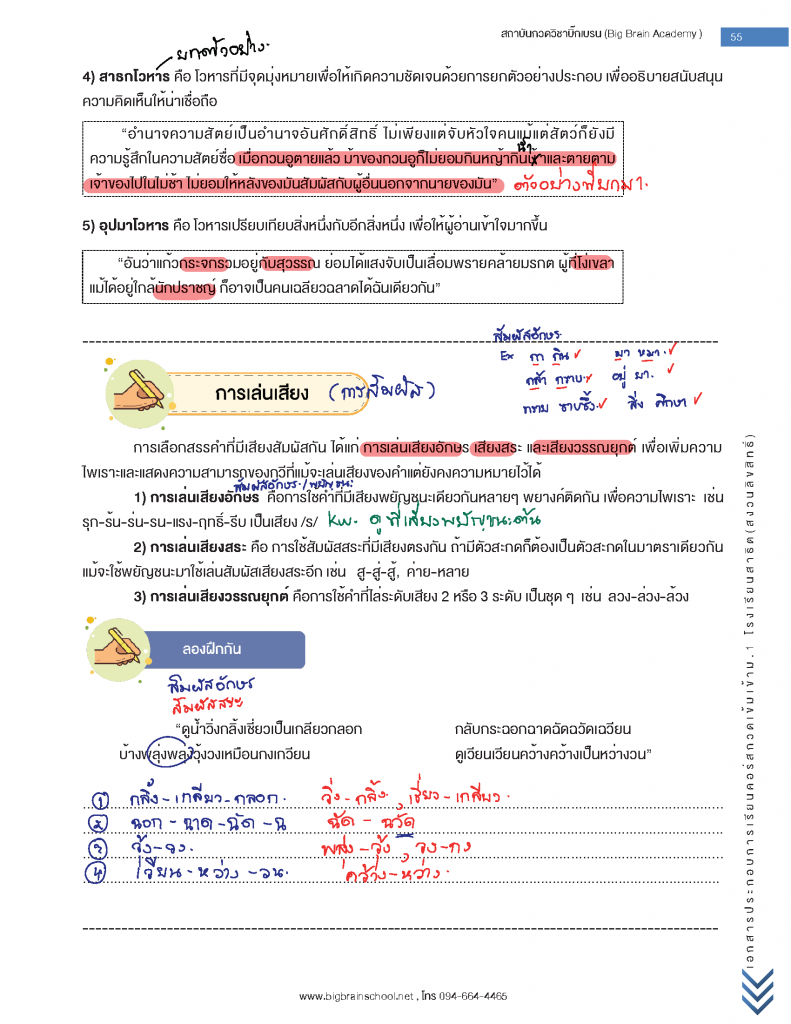 สถาบันกวดวิชาบิ๊กเบรน (Big Brain Academy ) 55
ยกตัวอย่าง
4) สาธกโวหาร คือ โวหารที่มีจุดมุ่งหมายเพื่อให้เกิดความชัดเจนด้วยการยกตัวอย่างประกอบ เพื่ออธิบายสนับสนุน
ความคิดเห็นให้น่าเชื่อถือ
“อำนาจความสัตย์เป็นอำนาจอันศักดิ์สิทธิ์ ไม่เพียงแต่จับหัวใจคนแม้แต่สัตว์ก็ยังมี
ความรู้สึกในความสัตย์ซื่อ เมื่อกวนอูตายแล้ว ม้าของกวนอูก็ไม่ยอมกินหญ้ากินน้ำและตายตาม
เจ้าของไปในไม่ช้า ไม่ยอมให้หลังของมันสัมผัสกับผู้อื่นนอกจากนายของมัน” ตัวอย่างที่ยกมา
5) อุปมาโวหาร คือ โวหารเปรียบเทียบสิ่งหนึ่งกับอีกสิ่งหนึ่ง เพื่อให้ผู้อ่านเข้าใจมากขึ้น
“อันว่าแก้วกระจกรวมอยู่กับสุวรรณ ย่อมได้แสงจับเป็นเลื่อมพรายคล้ายมรกต ผู้ที่โง่เขลา
แม้ได้อยู่ใกล้นักปราชญ์ ก็อาจเป็นคนเฉลียวฉลาดได้ฉันเดียวกัน”
สัมผัสอักษร
Ex กา กิน ✓ มา หมา ✓
กล้า กราบ ✓ อยู่ มา ✓
ทราม ซาบซึ้ง ✓ สิ่ง ศึกษา ✓
การเล่นเสียง (การสัมผัส)
การเลือกสรรคำที่มีเสียงสัมผัสกัน ได้แก่ การเล่นเสียงอักษร เสียงสระ และเสียงวรรณยุกต์ เพื่อเพิ่มความ
ไพเราะและแสดงความสามารถของกวีที่แม้จะเล่นเสียงของคำแต่ยังคงความหมายไว้ได้
สัมผัสอักษร/พยัญชนะ
1) การเล่นเสียงอักษร คือการใช้คำที่มีเสียงพยัญชนะเดียวกันหลายๆ พยางค์ติดกัน เพื่อความไพเราะ เช่น
รุก-ร้น-ร่น-รน-แรง-ฤทธิ์-รีบ เป็นเสียง /ร/ kw. ดูที่เสียงพยัญชนะต้น
2) การเล่นเสียงสระ คือ การใช้สัมผัสสระที่มีเสียงตรงกัน ถ้ามีตัวสะกดก็ต้องเป็นตัวสะกดในมาตราเดียวกัน
แม้จะใช้พยัญชนะมาใช้เล่นสัมผัสเสียงสระอีก เช่น สู-สู่-สู้, ค่าย-หลาย
3) การเล่นเสียงวรรณยุกต์ คือการใช้คำที่ไล่ระดับเสียง 2 หรือ 3 ระดับ เป็นชุด ๆ เช่น ลวง-ล่วง-ล้วง
ลองฝึกกัน
สัมผัสอักษร
สัมผัสสระ
“ดูน้ำวิ่งกลิ้งเชี่ยวเป็นเกลียวกลอก กลับกระฉอกฉาดฉัดฉวัดเฉวียน
บ้างพลุ่งพลุ่งวุ้งวงเหมือนกงเกวียน ดูเวียนเวียนคว้างคว้างเป็นหว่างวน”
1 กลิ้ง-เกลียว-กลอก วิ่ง-กลิ้ง, เชี่ยว-เกลียว
2 ฉอก-ฉาด-ฉัด-ฉ ฉัด-ฉวัด
3 วุ้ง-วง พลุ่ง-วุ้ง, วง-กง
4 เวียน-หว่าง-วน คว้าง-หว่าง
เอกสารประกอบการเรียนคอร์สกวดเข้มเข้าม.1 โรงเรียนสาธิต(สงวนลิขสิทธิ์)
www.bigbrainschool.net , โทร 094-664-4465